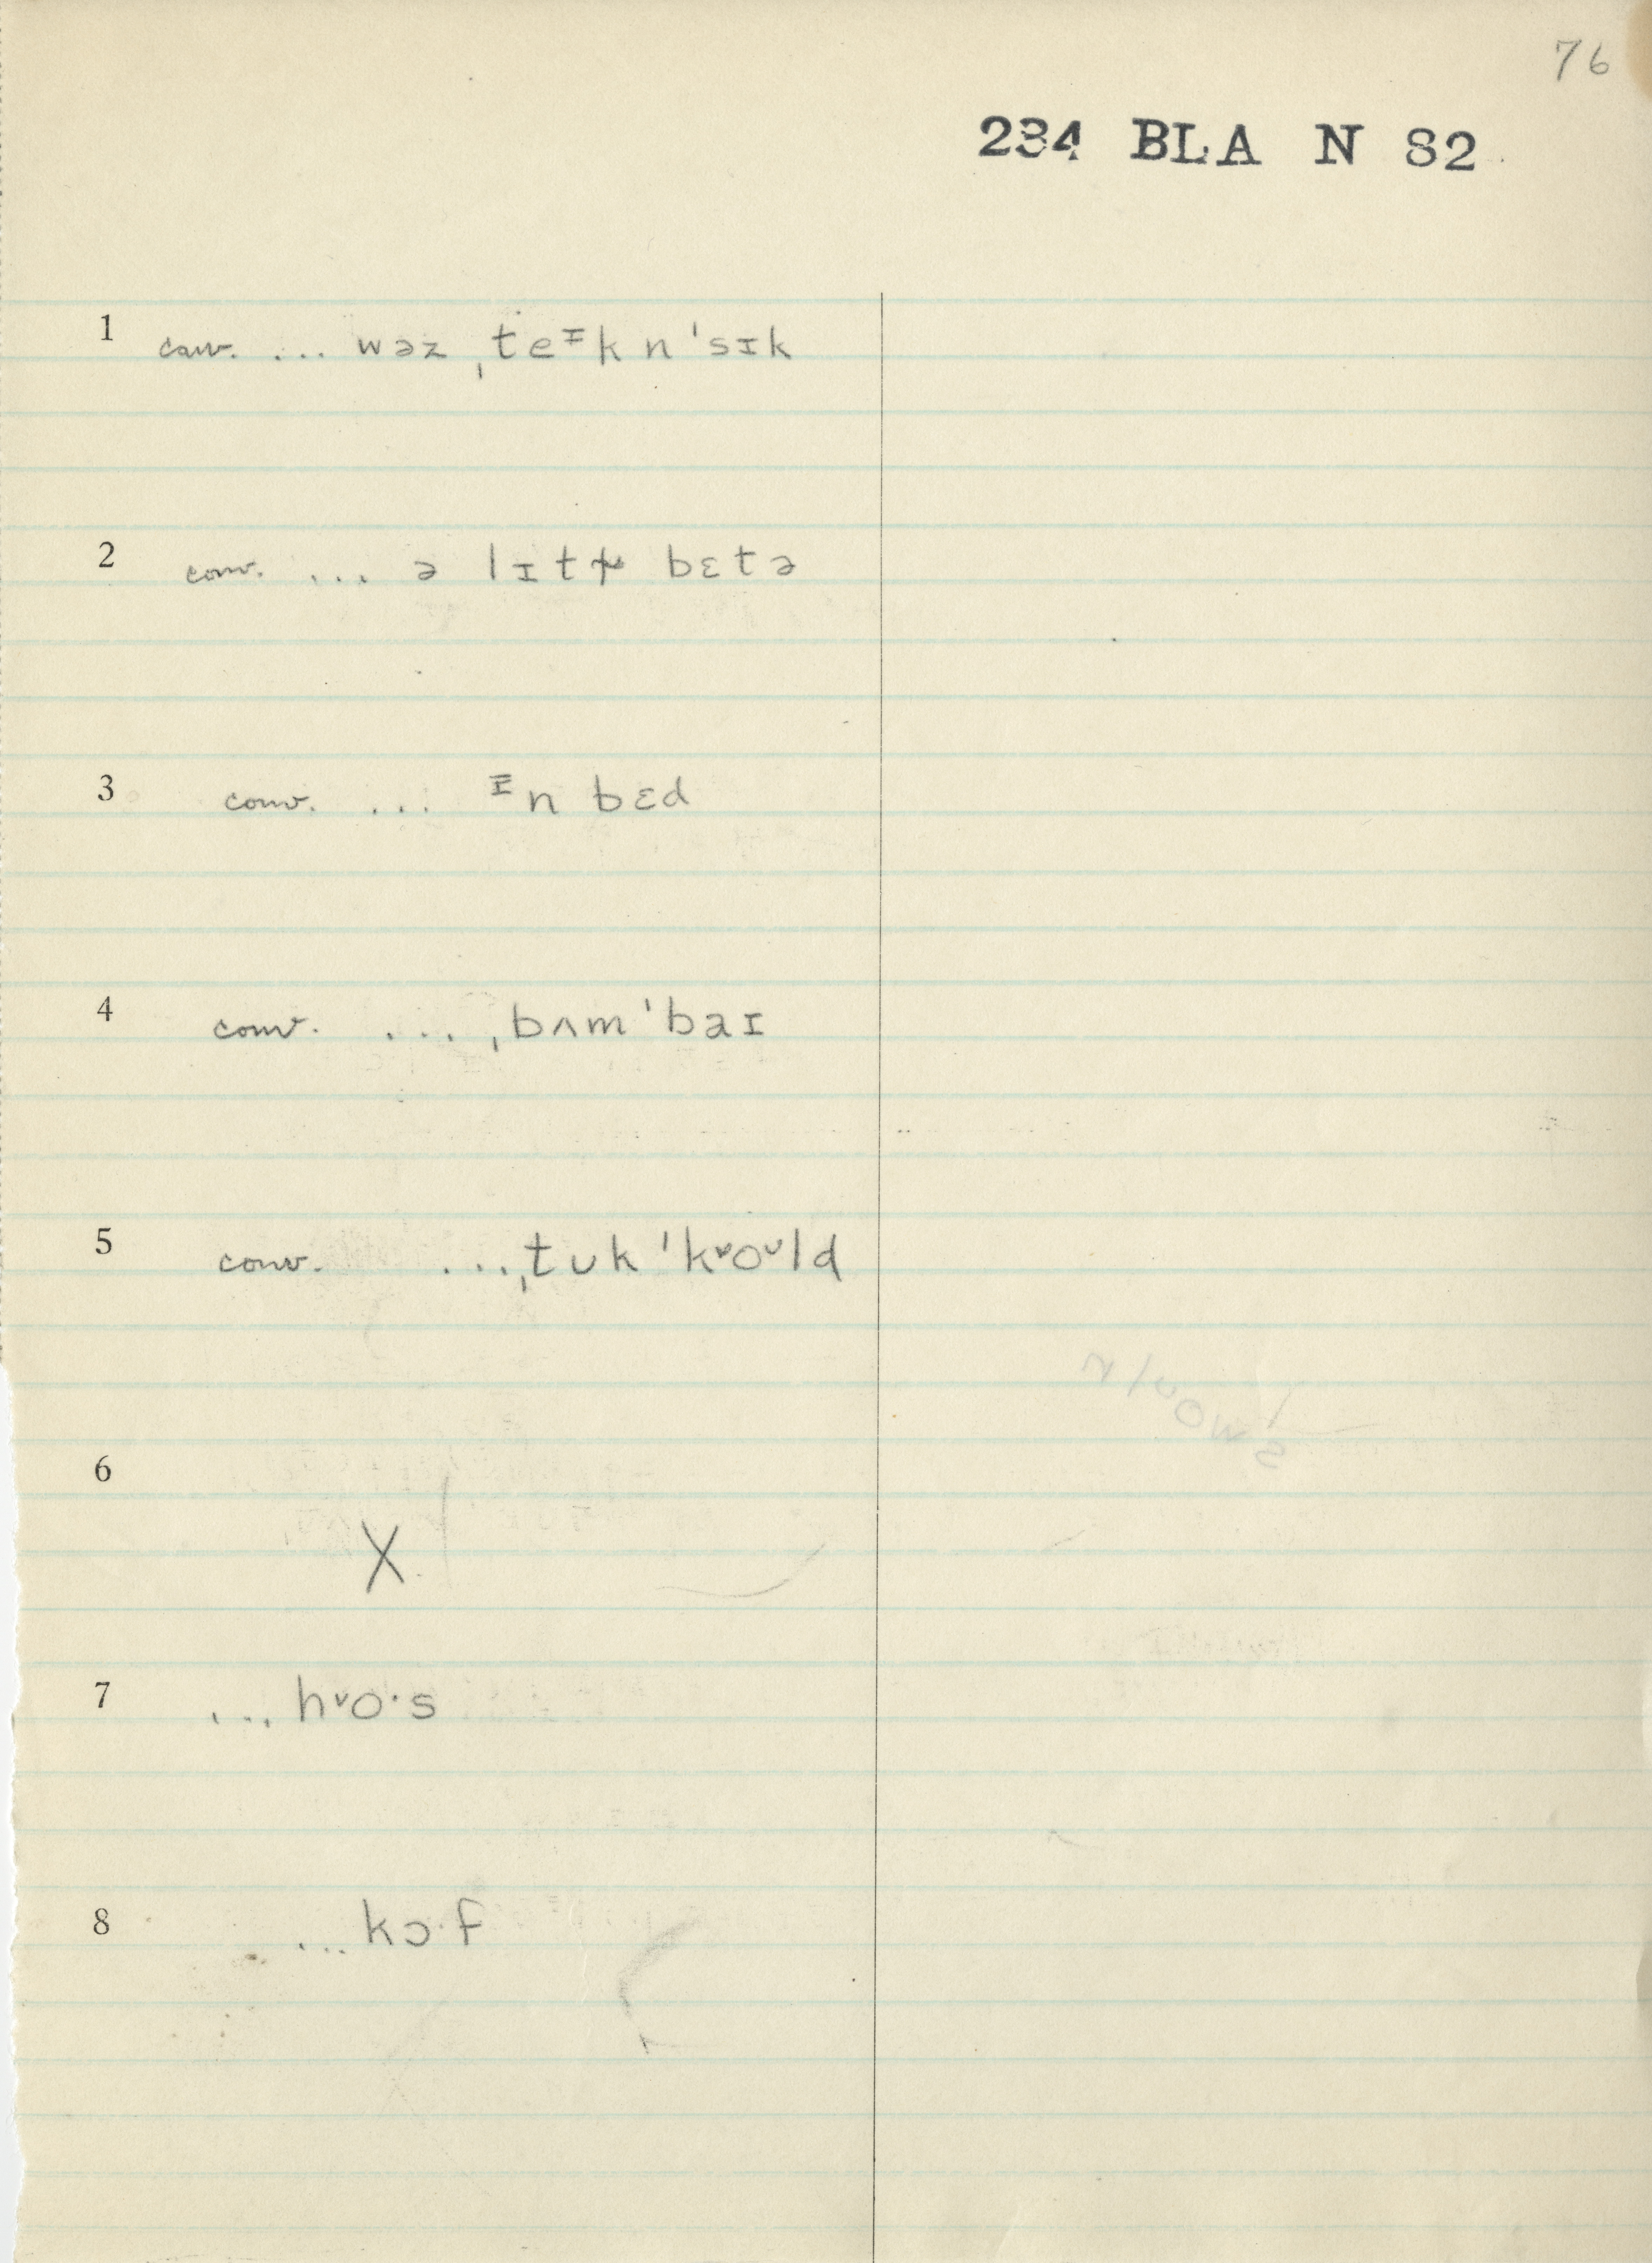 76
234 BLA N 82
1 conv. ... wəz ˌteᶦk n ˈsɪk
2 conv. ... ə lɪt bɛtə
3 conv. ... ᶦn bɛd
4 conv. ... ˌbʌmˈbaɪ
5 conv. ... ˌtʊk ˈkᵛoᵛld
6
X
7 ... hᵛo·s
8 ... kɔ·f